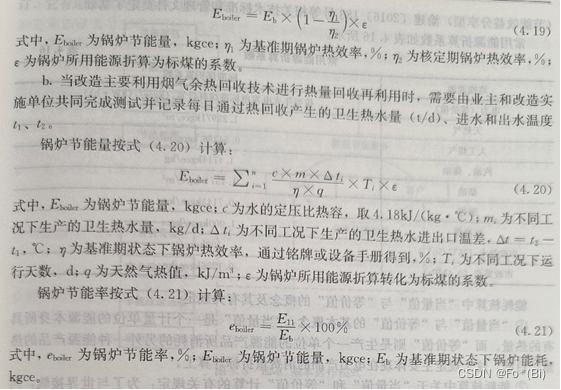 E_boiler = E_b × (1 − η₁/η₂) × ε (4.19)
式中，E_boiler 为锅炉节能量，kgce；η₁ 为基准期锅炉热效率，%；η₂ 为核定期锅炉热效率，%；
ε 为锅炉所用能源折算为标煤的系数。
b. 当改造主要利用烟气余热回收技术进行热量回收再利用时，需要由业主和改造实
施单位共同完成测试并记录每日通过热回收产生的卫生热水量（t/d）、进水和出水温度
t₁、t₂。
锅炉节能量按式（4.20）计算：
E_boiler = ∑ⁿᵢ₌₁ (c×m×Δtᵢ)/(η×q) × Tᵢ × ε (4.20)
式中，E_boiler 为锅炉节能量，kgce；c 为水的定压比热容，取 4.18kJ/(kg·℃)；mᵢ 为不同工
况下生产的卫生热水量，kg/d；Δtᵢ 为不同工况下生产的卫生热水进出口温差，Δt=t₂−
t₁，℃；η 为基准期状态下锅炉热效率，通过铭牌或设备手册得到，%；Tᵢ 为不同工况下运
行天数，d；q 为天然气热值，kJ/m³；ε 为锅炉所用能源折算转化为标煤的系数。
锅炉节能率按式（4.21）计算：
e_boiler = E₁₁/E_b × 100% (4.21)
式中，e_boiler 为锅炉节能率，%；E_boiler 为锅炉节能量，kgce；E_b 为基准期状态下锅炉能耗，
kgce。
CSDN @Fo*(Bi)